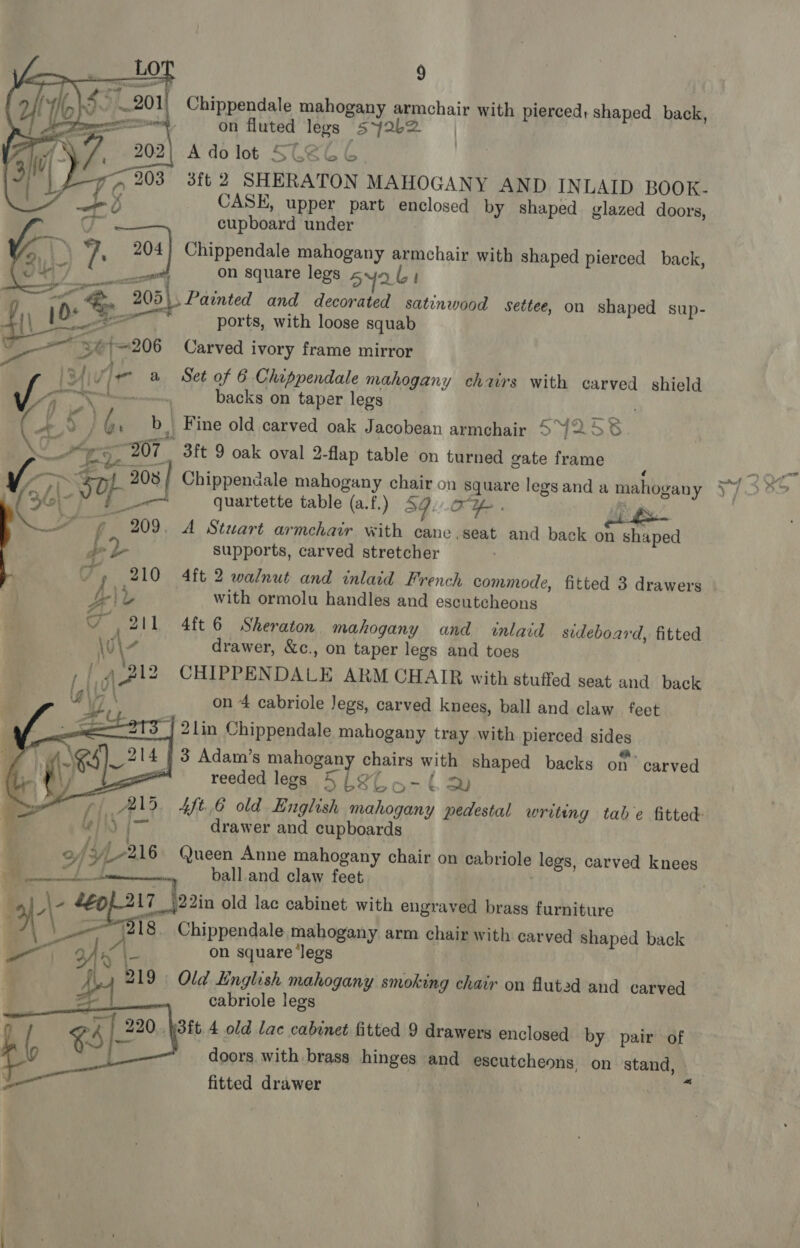 LOT 9
201 Chippendale mahogany armchair with pierced, shaped back,
on fluted legs 54262
202 A do lot
203 3ft 2 SHERATON MAHOGANY AND INLAID BOOK-
CASE, upper part enclosed by shaped glazed doors,
cupboard under
204 Chippendale mahogany armchair with shaped pierced back,
on square legs 54261
205 Painted and decorated satinwood settee, on shaped sup-
ports, with loose squab
206 Carved ivory frame mirror
a Set of 6 Chippendale mahogany chairs with carved shield
backs on taper legs
b Fine old carved oak Jacobean armchair 54258
207 3ft 9 oak oval 2-flap table on turned gate frame
208 Chippendale mahogany chair on square legs and a mahogany
quartette table (a.f.)
209. A Stuart armchair with cane seat and back on shaped
supports, carved stretcher
210 4ft 2 walnut and inlaid French commode, fitted 3 drawers
with ormolu handles and escutcheons
211 4ft 6 Sheraton mahogany and inlaid sideboard, fitted
drawer, &c., on taper legs and toes
212 CHIPPENDALE ARM CHAIR with stuffed seat and back
on 4 cabriole legs, carved knees, ball and claw feet
213 21in Chippendale mahogany tray with pierced sides
214 3 Adam's mahogany chairs with shaped backs on carved
reeded legs
215 4ft 6 old English mahogany pedestal writing tab e fitted
drawer and cupboards
216 Queen Anne mahogany chair on cabriole legs, carved knees
ball and claw feet
217 22in old lac cabinet with engraved brass furniture
218 Chippendale mahogany arm chair with carved shaped back
on square legs
219 Old English mahogany smoking chair on fluted and carved
cabriole legs
220 3ft 4 old lac cabinet fitted 9 drawers enclosed by pair of
doors with brass hinges and escutcheons, on stand,
fitted drawer